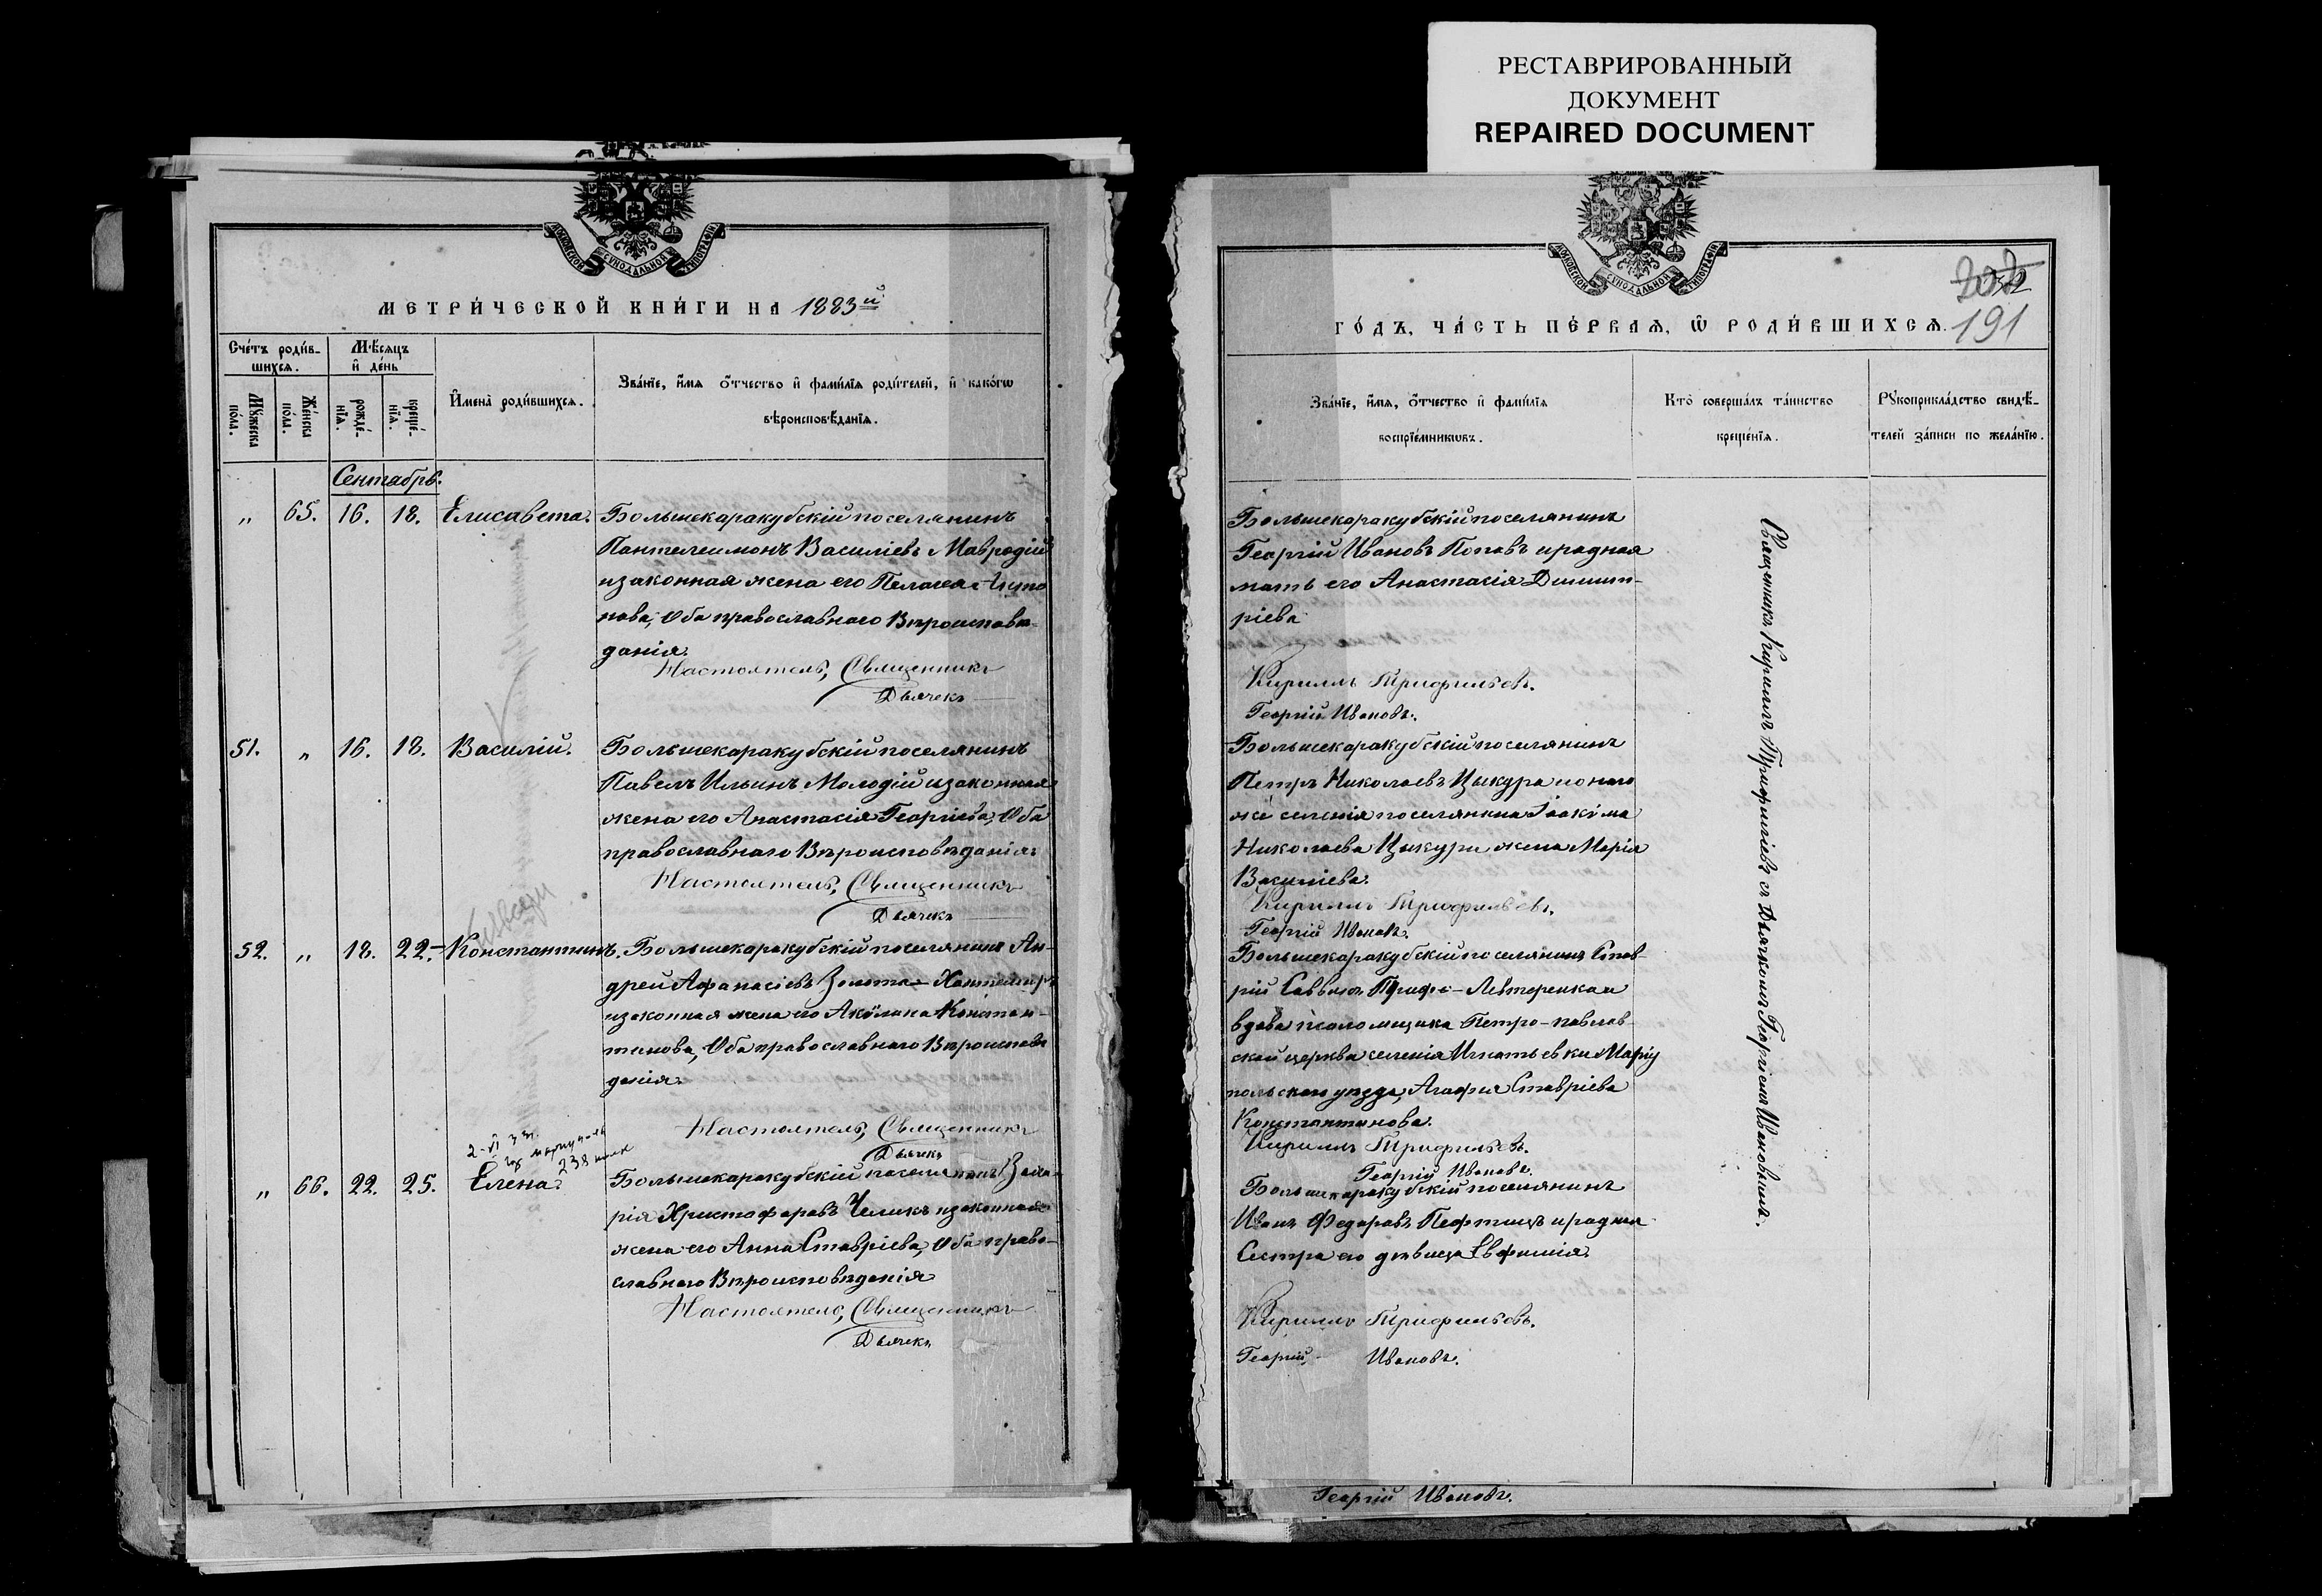 РЕСТАВРИРОВАННЫЙ
ДОКУМЕНТ
REPAIRED DOCUMENT
МОСКОВСКОЙ СѴНОДАЛЬНОЙ ТИПОГРАФІИ
МЕТРИ́ЧЕСКОЙ КНИ́ГИ НА 1883й
Сче́тъ роди́в-
шихся.
Мѣ́сяцъ
и҆ де́нь
Мꙋ́жеска
по́ла.
Же́нска
по́ла.
рожде́-
нїѧ.
креще́-
нїѧ.
И҆мена̀ роди́вшихся.
Зва́нїе, и҆́мѧ ѻ҆́тчество и҆ фами́лїѧ роди́телей, и҆ како́гѡ
вѣроисповѣ́данїѧ.
Сентябрь.
„ 65. 16. 18. Елисавета. Большекаракубскій поселянинъ
Пантелеимонъ Василіевъ Мавродій
и законная жена его Пелагея Анто
нова, Оба православнаго Вѣроисповѣ-
данія.
Настоятель, Священникъ
Дьячекъ
51. „ 16. 18. Василій. Большекаракубскій поселянинъ
Павелъ Ильинъ Молодій и законная
жена его Анастасія Георгіева, Оба
православнаго Вѣроисповѣданія.
Настоятель, Священникъ
Дьячекъ
52. „ 18. 22. Константинъ. Большекаракубскій поселянинъ Ан-
дрей Аѳанасіевъ Золота-Хантемиръ
и законная жена его Акулина Констан-
тинова, Оба православнаго Вѣроисповѣ
данія.
Настоятель, Священникъ
Дьячекъ
238
„ 66. 22. 25. Елена. Большекаракубскій поселянинъ Заха-
рія Христофоровъ Челикъ и законная
жена его Анна Ставріева, Оба право-
славнаго Вѣроисповѣданія
Настоятель, Священникъ
Дьячекъ
МОСКОВСКОЙ СѴНОДАЛЬНОЙ ТИПОГРАФІИ
191
ГО́ДЪ, ЧА́СТЬ ПЕ́РВАѦ, Ѡ҆ РОДИ́ВШИХСѦ.
Зва́нїе, и҆́мѧ, ѻ҆́тчество и҆ фами́лїѧ
воспрїе́мникѡвъ.
Кто̀ соверша́лъ та́инство
креще́нїѧ.
Рꙋкоприкла́дство свидѣ́-
телей за́писи по жела́нїю.
Большекаракубскій поселянинъ
Георгій Ивановъ Поповъ и родная
мать его Анастасія Димит-
ріева
Кириллъ Трифильевъ.
Георгій Ивановъ.
Большекаракубскій поселянинъ
Петръ Николаевъ Цыкура и того
же селенія поселянина Іоакима
Николаева Цыкуры жена Марія
Василіева.
Кириллъ Трифильевъ.
Георгій Ивановъ.
Большекаракубскій поселянинъ Став-
рій Саввинъ -Левтеренка и
вдова псаломщика Петро-павлов-
ской церкви селенія Игнатьевки Маріу
польскаго уѣзда, Агафія Ставріева
Константинова.
Кириллъ Трифильевъ.
Георгій Ивановъ.
Большекаракубскій поселянинъ
Иванъ Федоровъ и родная
Сестра его дѣвица Евфимія.
Кириллъ Трифильевъ.
Георгій Ивановъ.
Священникъ Кириллъ Трифиліевъ съ Дьячкомъ Георгіемъ Ивановымъ.
Георгій Ивановъ.